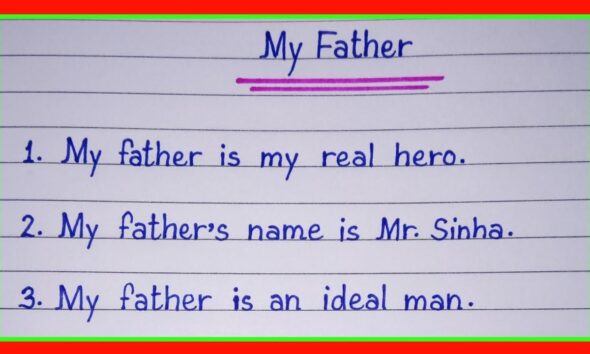 My Father
1. My father is my real hero.
2. My father's name is Mr. Sinha.
3. My father is an ideal man.